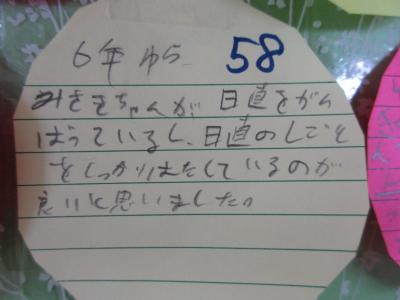 6年 ゆら 58
みさきちゃんが、日直をがん
ばっているし、日直のしごと
をしっかりはたしているのが
良いと思いました。